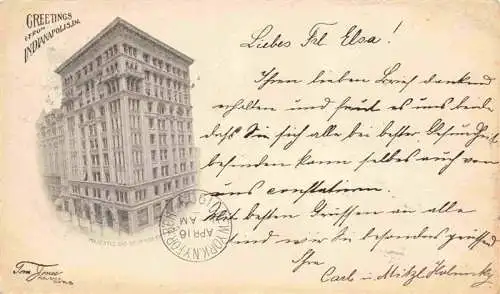 GREETINGS
FROM
INDIANAPOLIS, IN.
Liebes Frl. Elsa!
Ihren lieben Brief dankend
erhalten und freut es uns beide
daß Sie sich alle bei bester Gesundheit
befinden kann selbes auch von
uns constatiren.
Mit besten Grüssen an alle
sind wir Sie besonders grüssend
Ihre
Carl u. Mitzl
NEW YORK, N.Y.
APR 16
AM
MAJESTIC BUILDING
Tom Jones